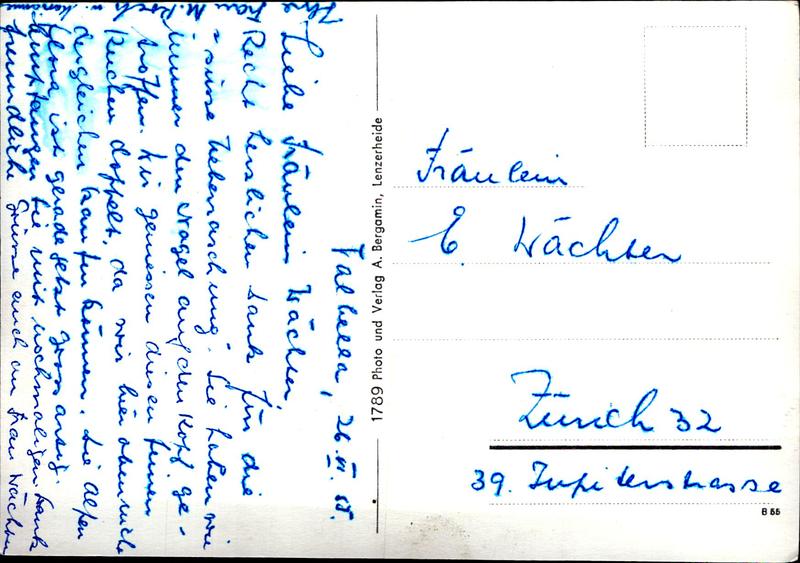 Valbella, 26. VI. 55.
Liebe Fräulein Wächter,
Recht herzlichen Dank für die
süsse Ueberraschung. Sie haben wie
immer den Nagel auf den Kopf ge-
troffen. Wir geniessen diesen feinen
Kuchen doppelt, da wir hier oben nicht
dergleichen kaufen können. Die Alpen
flora ist gerade jetzt grossartig.
Empfangen Sie mit nochmaligen Dank
freundliche Grüsse auch an Frau Wächter
Ihre
Frau M.
1789 Photo und Verlag A. Bergamin, Lenzerheide
Fräulein
E. Wächter
Zürich 32
39. Jupiterstrasse
B 55